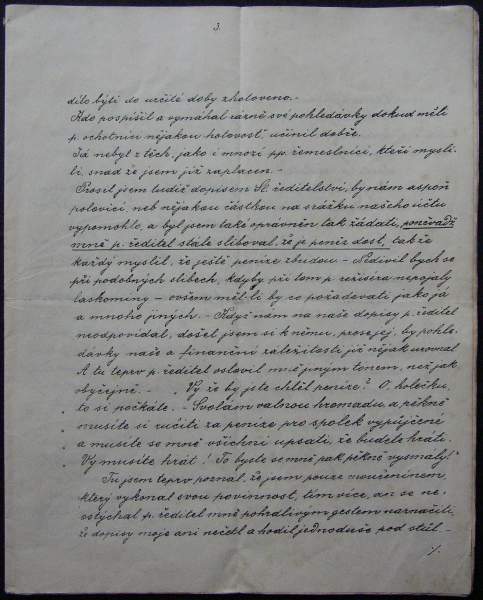 3.
dílo býti do určité doby zhotoveno.-
Kdo pospíšil a vymáhal rázně své pohledávky dokud měli
p. ochotníci nějakou hotovosť učinil dobře.
Já nebyl z těch, jako i mnozí pp. řemeslníci, kteří mysli-
li, snad že jsem již zaplacen.-
Prosil jsem tudíž dopisem Sl. ředitelství, by nám aspoň
polovicí, neb nějakou částkou na srážku našeho účtu
vypomohlo, a byl jsem také oprávněn tak žádati, poněvadž
mně p. ředitel stále sliboval, že je peněz dosť, takže
každý myslil, že ještě peníze zbudou - Nedivil bych se
při podobných slibech, kdyby při tom p. režiséra nepojaly
laskominy - ovšem měl-li by co požadovati jako já
a mnoho jiných. - Když nám na naše dopisy p. ředitel
neodpovídal, došel jsem si k němu, prose jej, by pohle-
dávky naše a finanční záležitosti již nějak urovnal
A tu teprv p. ředitel oslovil mě jiným tónem, než jak
obyčejně. - „Vy že by jste chtěl peníze? O, holečku,
„ to si počkáte. - Svolám valnou hromadu, a pěkně
„ musíte si ručiti za peníze pro spolek vypůjčené
„ a musíte se mně všichni upsati, že budete hráti.
„ Vy musíte hrát! To byste se mně pak pěkně vysmály!"
Tu jsem teprv poznal, že jsem pouze mouřenínem,
který vykonal svou povinnost, tím více, an se ne-
ostýchal p. ředitel mně pohrdlivým gestem naznačiti,
že dopisy moje ani nečetl a hodil jednoduše pod stůl -
./.